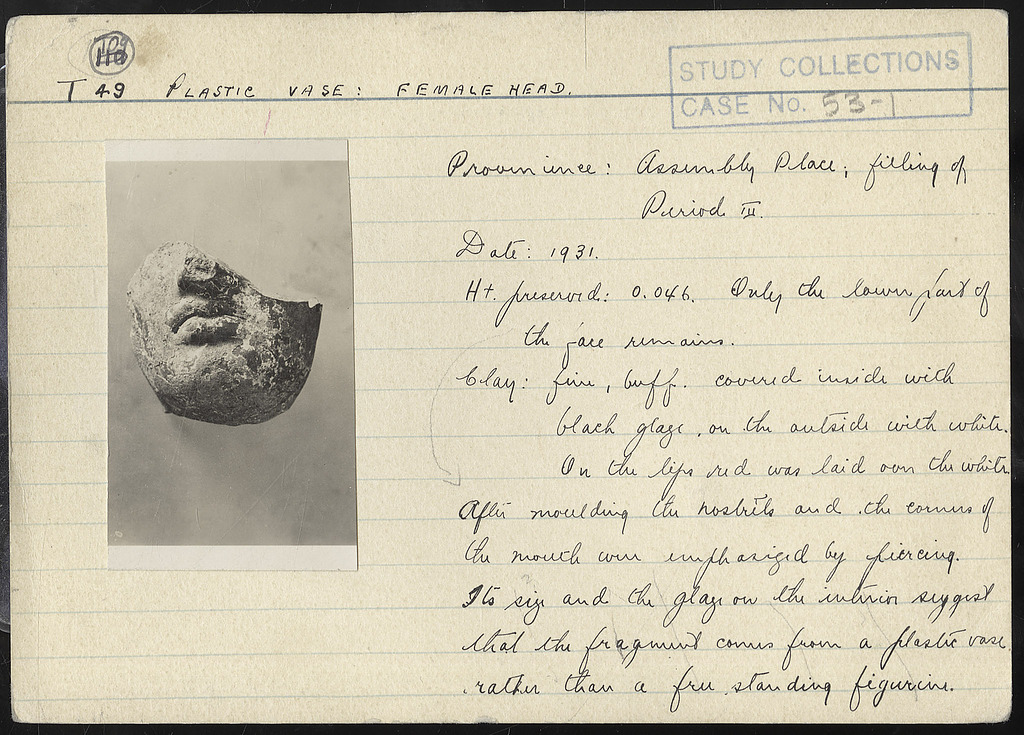 T 49 PLASTIC VASE: FEMALE HEAD.
STUDY COLLECTIONS
CASE No. 53-1
Provenience: Assembly Place; filling of
Period III.
Date: 1931.
Ht. preserved: 0.046. Only the lower part of
the face remains.
Clay: fine, buff. covered inside with
black glaze, on the outside with white.
On the lips red was laid over the white.
After moulding the nostrils and the corners of
the mouth were emphasized by piercing.
Its size and the glaze on the interior suggest
that the fragment comes from a plastic vase
rather than a free standing figurine.